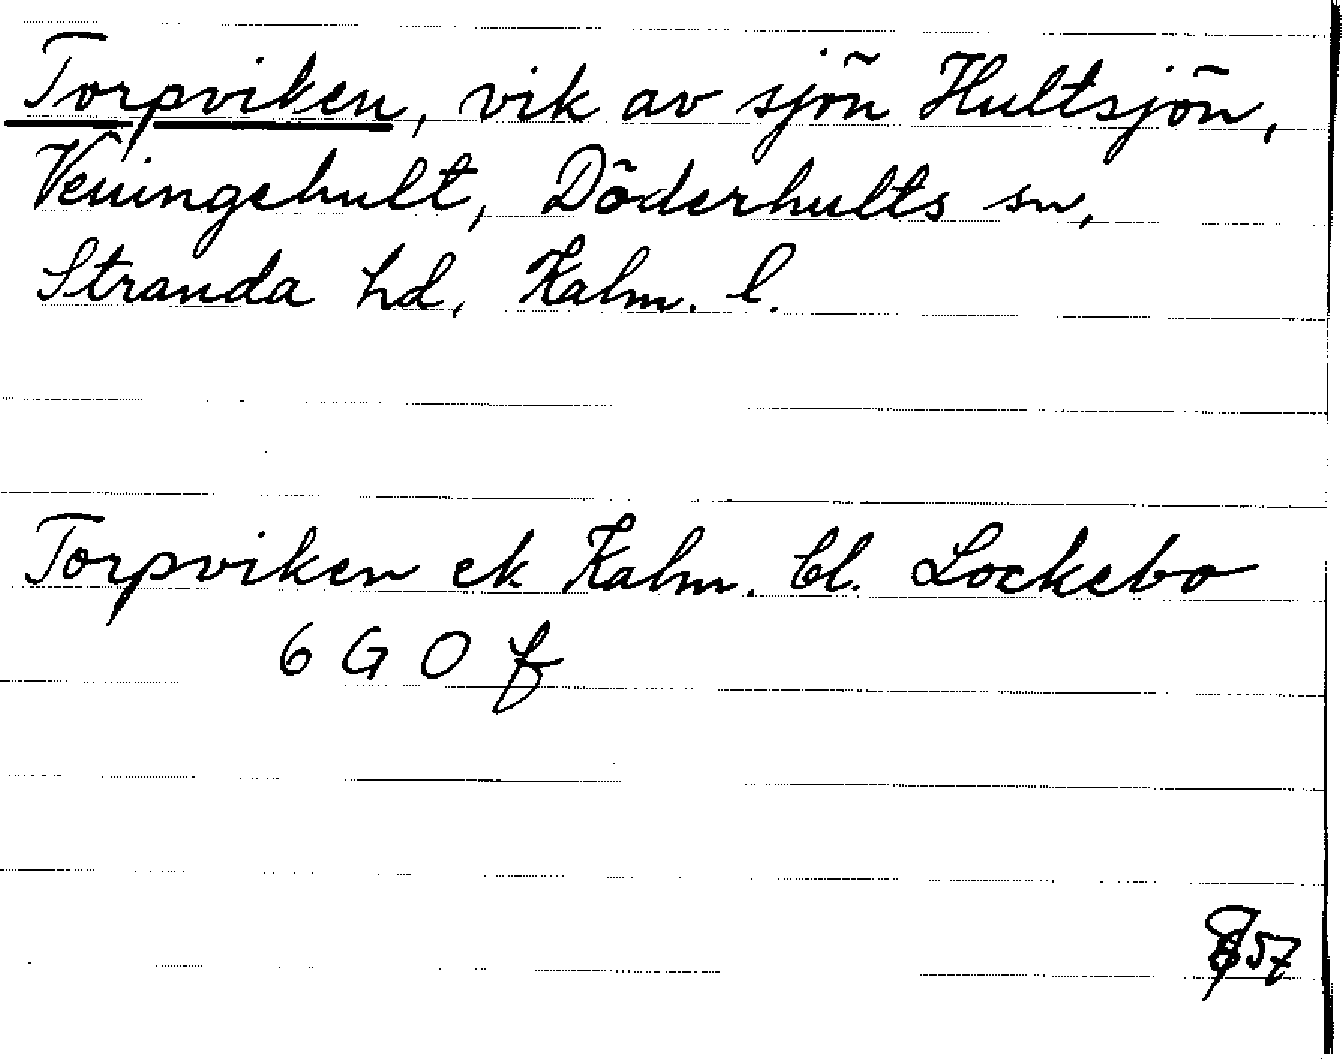 Torpviken, vik av sjön Hultsjön,
Döderhults sn,
Stranda hd, Kalm. l.
Torpviken ek Kalm. bl. Lockebo
6 G 0 f
57